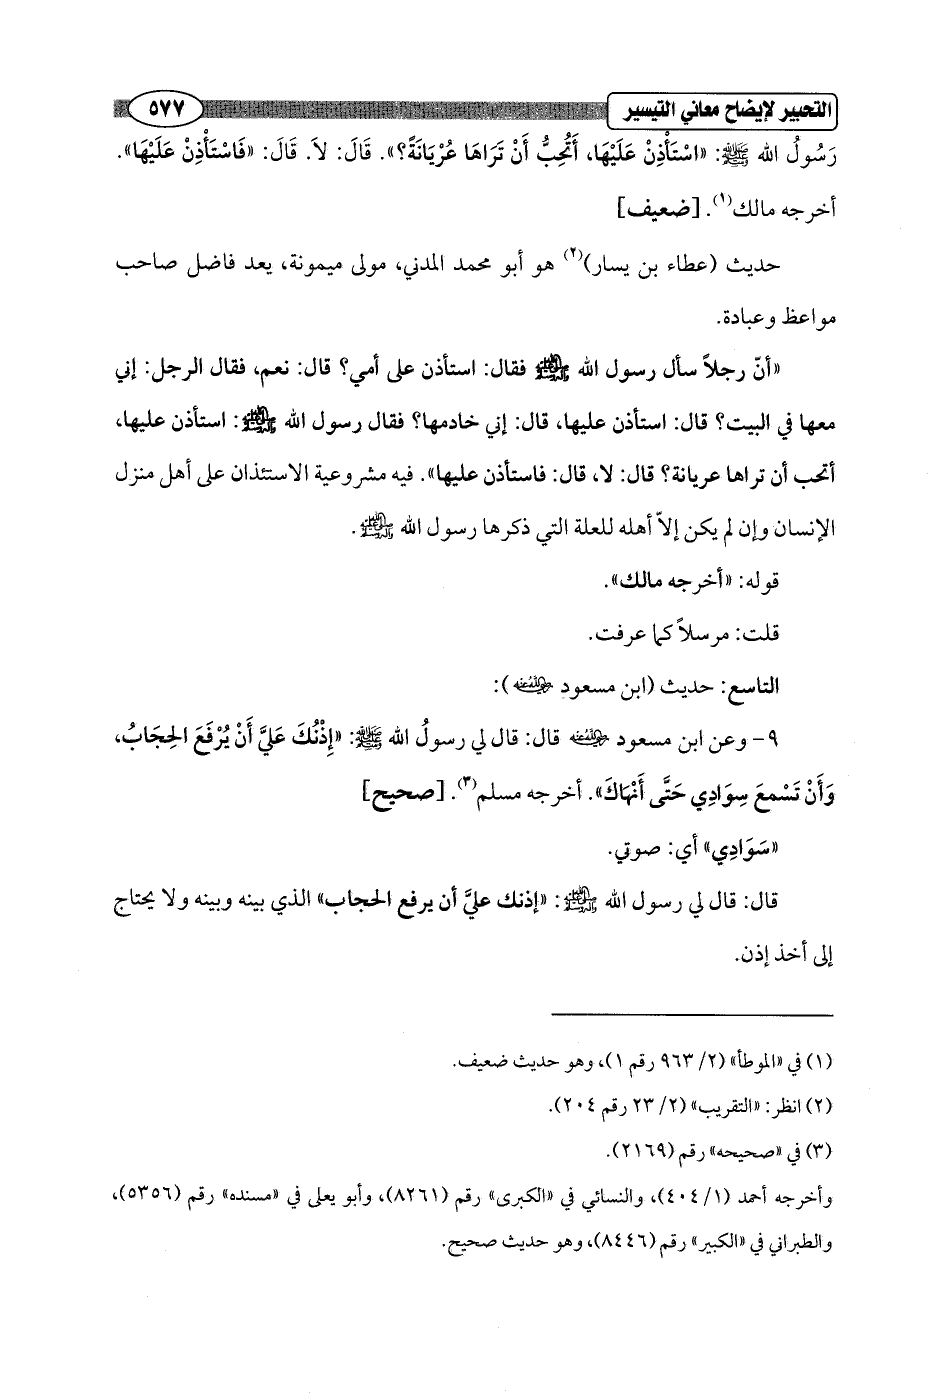 التحبير لإيضاح معاني التيسير ٥٧٧
رَسُولُ الله ﷺ: «اسْتَأْذِنْ عَلَيْهَا، أَتُحِبُّ أَنْ تَرَاهَا عُرْيَانَةً؟». قَالَ: لاَ. قَالَ: «فَاسْتَأْذِنْ عَلَيْهَا».
أخرجه مالك(١). [ضعيف]
حديث (عطاء بن يسار)(٢) هو أبو محمد المدني، مولى ميمونة، يعد فاضل صاحب
مواعظ وعبادة.
«أنّ رجلاً سأل رسول الله ﷺ فقال: استأذن على أمي؟ قال: نعم، فقال الرجل: إني
معها في البيت؟ قال: استأذن عليها، قال: إني خادمها؟ فقال رسول الله ﷺ: استأذن عليها،
أتحب أن تراها عريانة؟ قال: لا، قال: فاستأذن عليها». فيه مشروعية الاستئذان على أهل منزل
الإنسان وإن لم يكن إلاّ أهله للعلة التي ذكرها رسول الله ﷺ.
قوله: «أخرجه مالك».
قلت: مرسلاً كما عرفت.
التاسع: حديث (ابن مسعود رضي الله عنه):
٩- وعن ابن مسعود رضي الله عنه قال: قال لي رسولُ الله ﷺ: «إِذْنُكَ عَلَيَّ أَنْ يُرْفَعَ الحِجَابُ،
وَأَنْ تَسْمعَ سِوَادِي حَتَّى أَنْهَاكَ». أخرجه مسلم(٣). [صحيح]
«سَوَادِي» أي: صوتي.
قال: قال لي رسول الله ﷺ: «إذنك عليَّ أن يرفع الحجاب» الذي بينه وبينه ولا يحتاج
إلى أخذ إذن.
(١) في «الموطأ» (٢/ ٩٦٣ رقم ١)، وهو حديث ضعيف.
(٢) انظر: «التقريب» (٢/ ٢٣ رقم ٢٠٤).
(٣) في «صحيحه» رقم (٢١٦٩).
وأخرجه أحمد (١/ ٤٠٤)، والنسائي في «الكبرى» رقم (٨٢٦١)، وأبو يعلى في «مسنده» رقم (٥٣٥٦)،
والطبراني في «الكبير» رقم (٨٤٤٦)، وهو حديث صحيح.